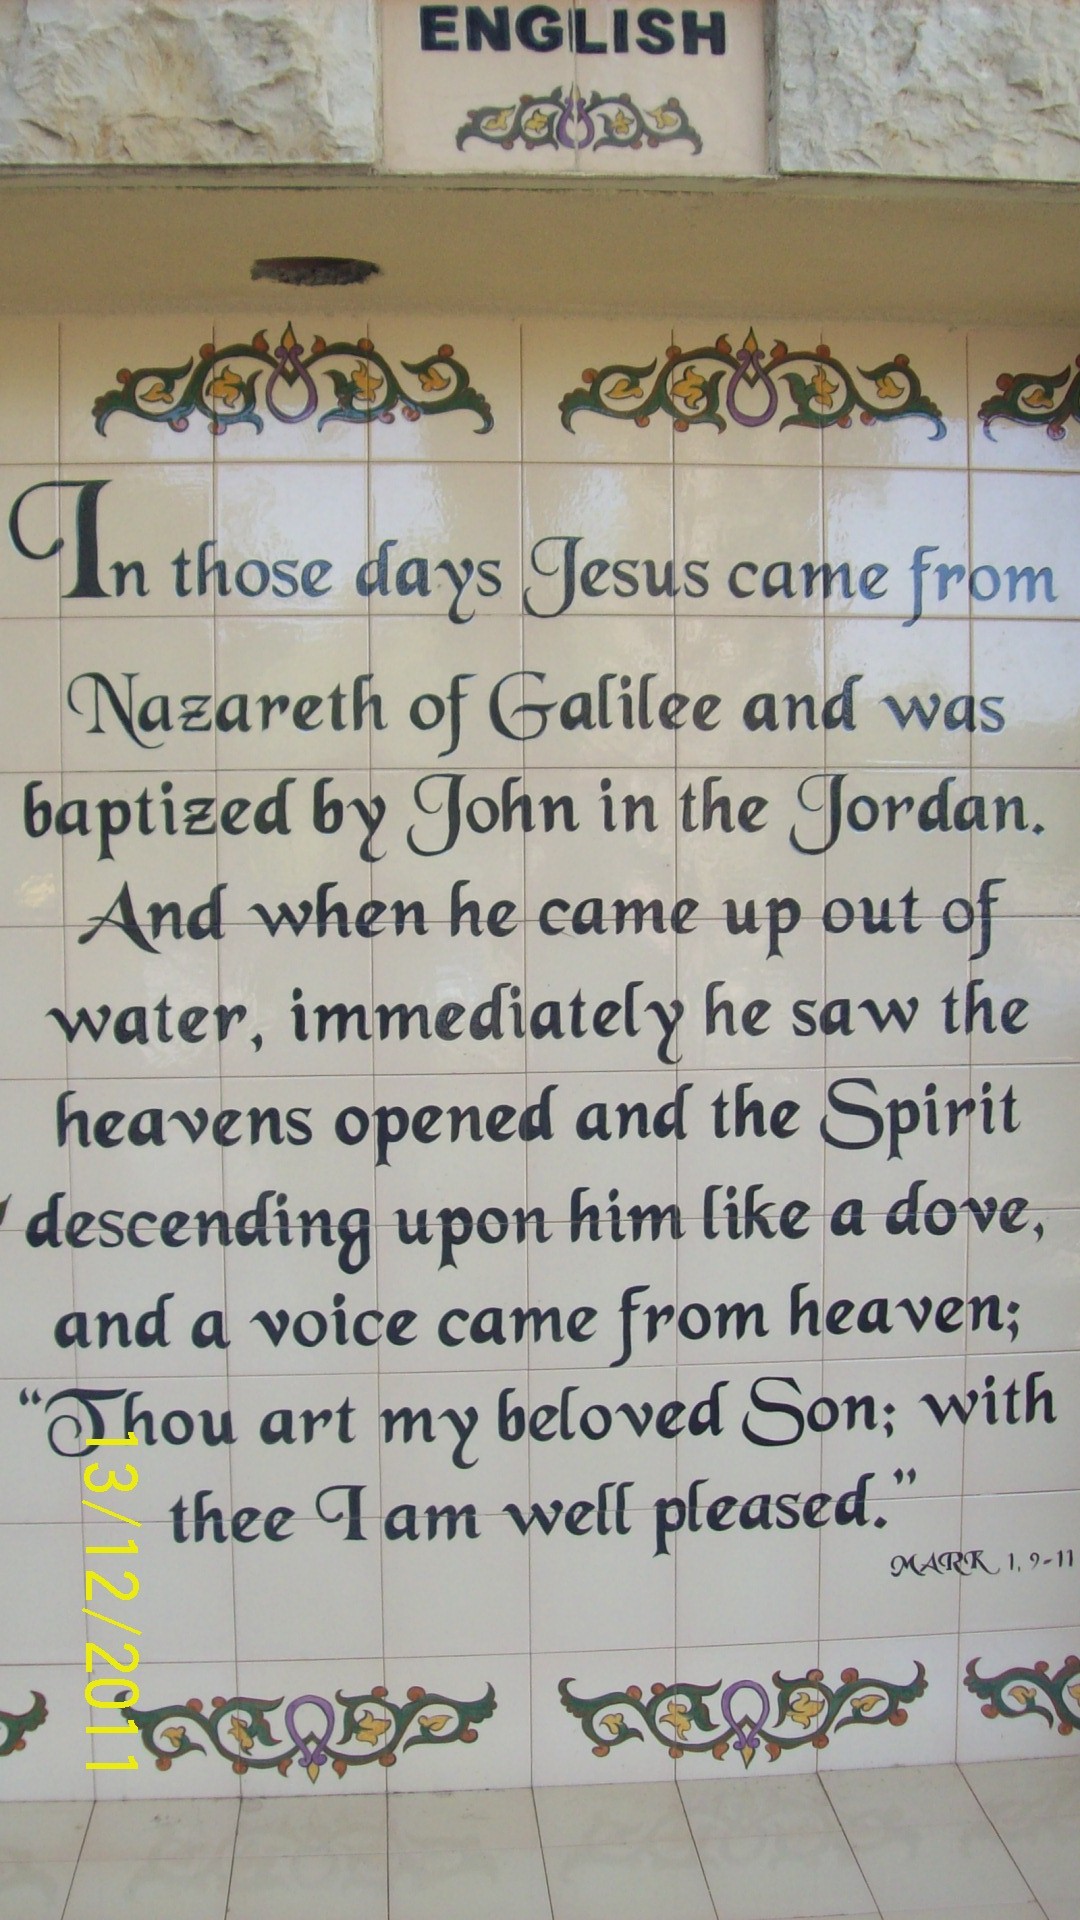 ENGLISH
In those days Jesus came from
Nazareth of Galilee and was
baptized by John in the Jordan.
And when he came up out of
water, immediately he saw the
heavens opened and the Spirit
descending upon him like a dove,
and a voice came from heaven;
“Thou art my beloved Son; with
thee I am well pleased.”
MARK 1, 9-11
13/12/2011